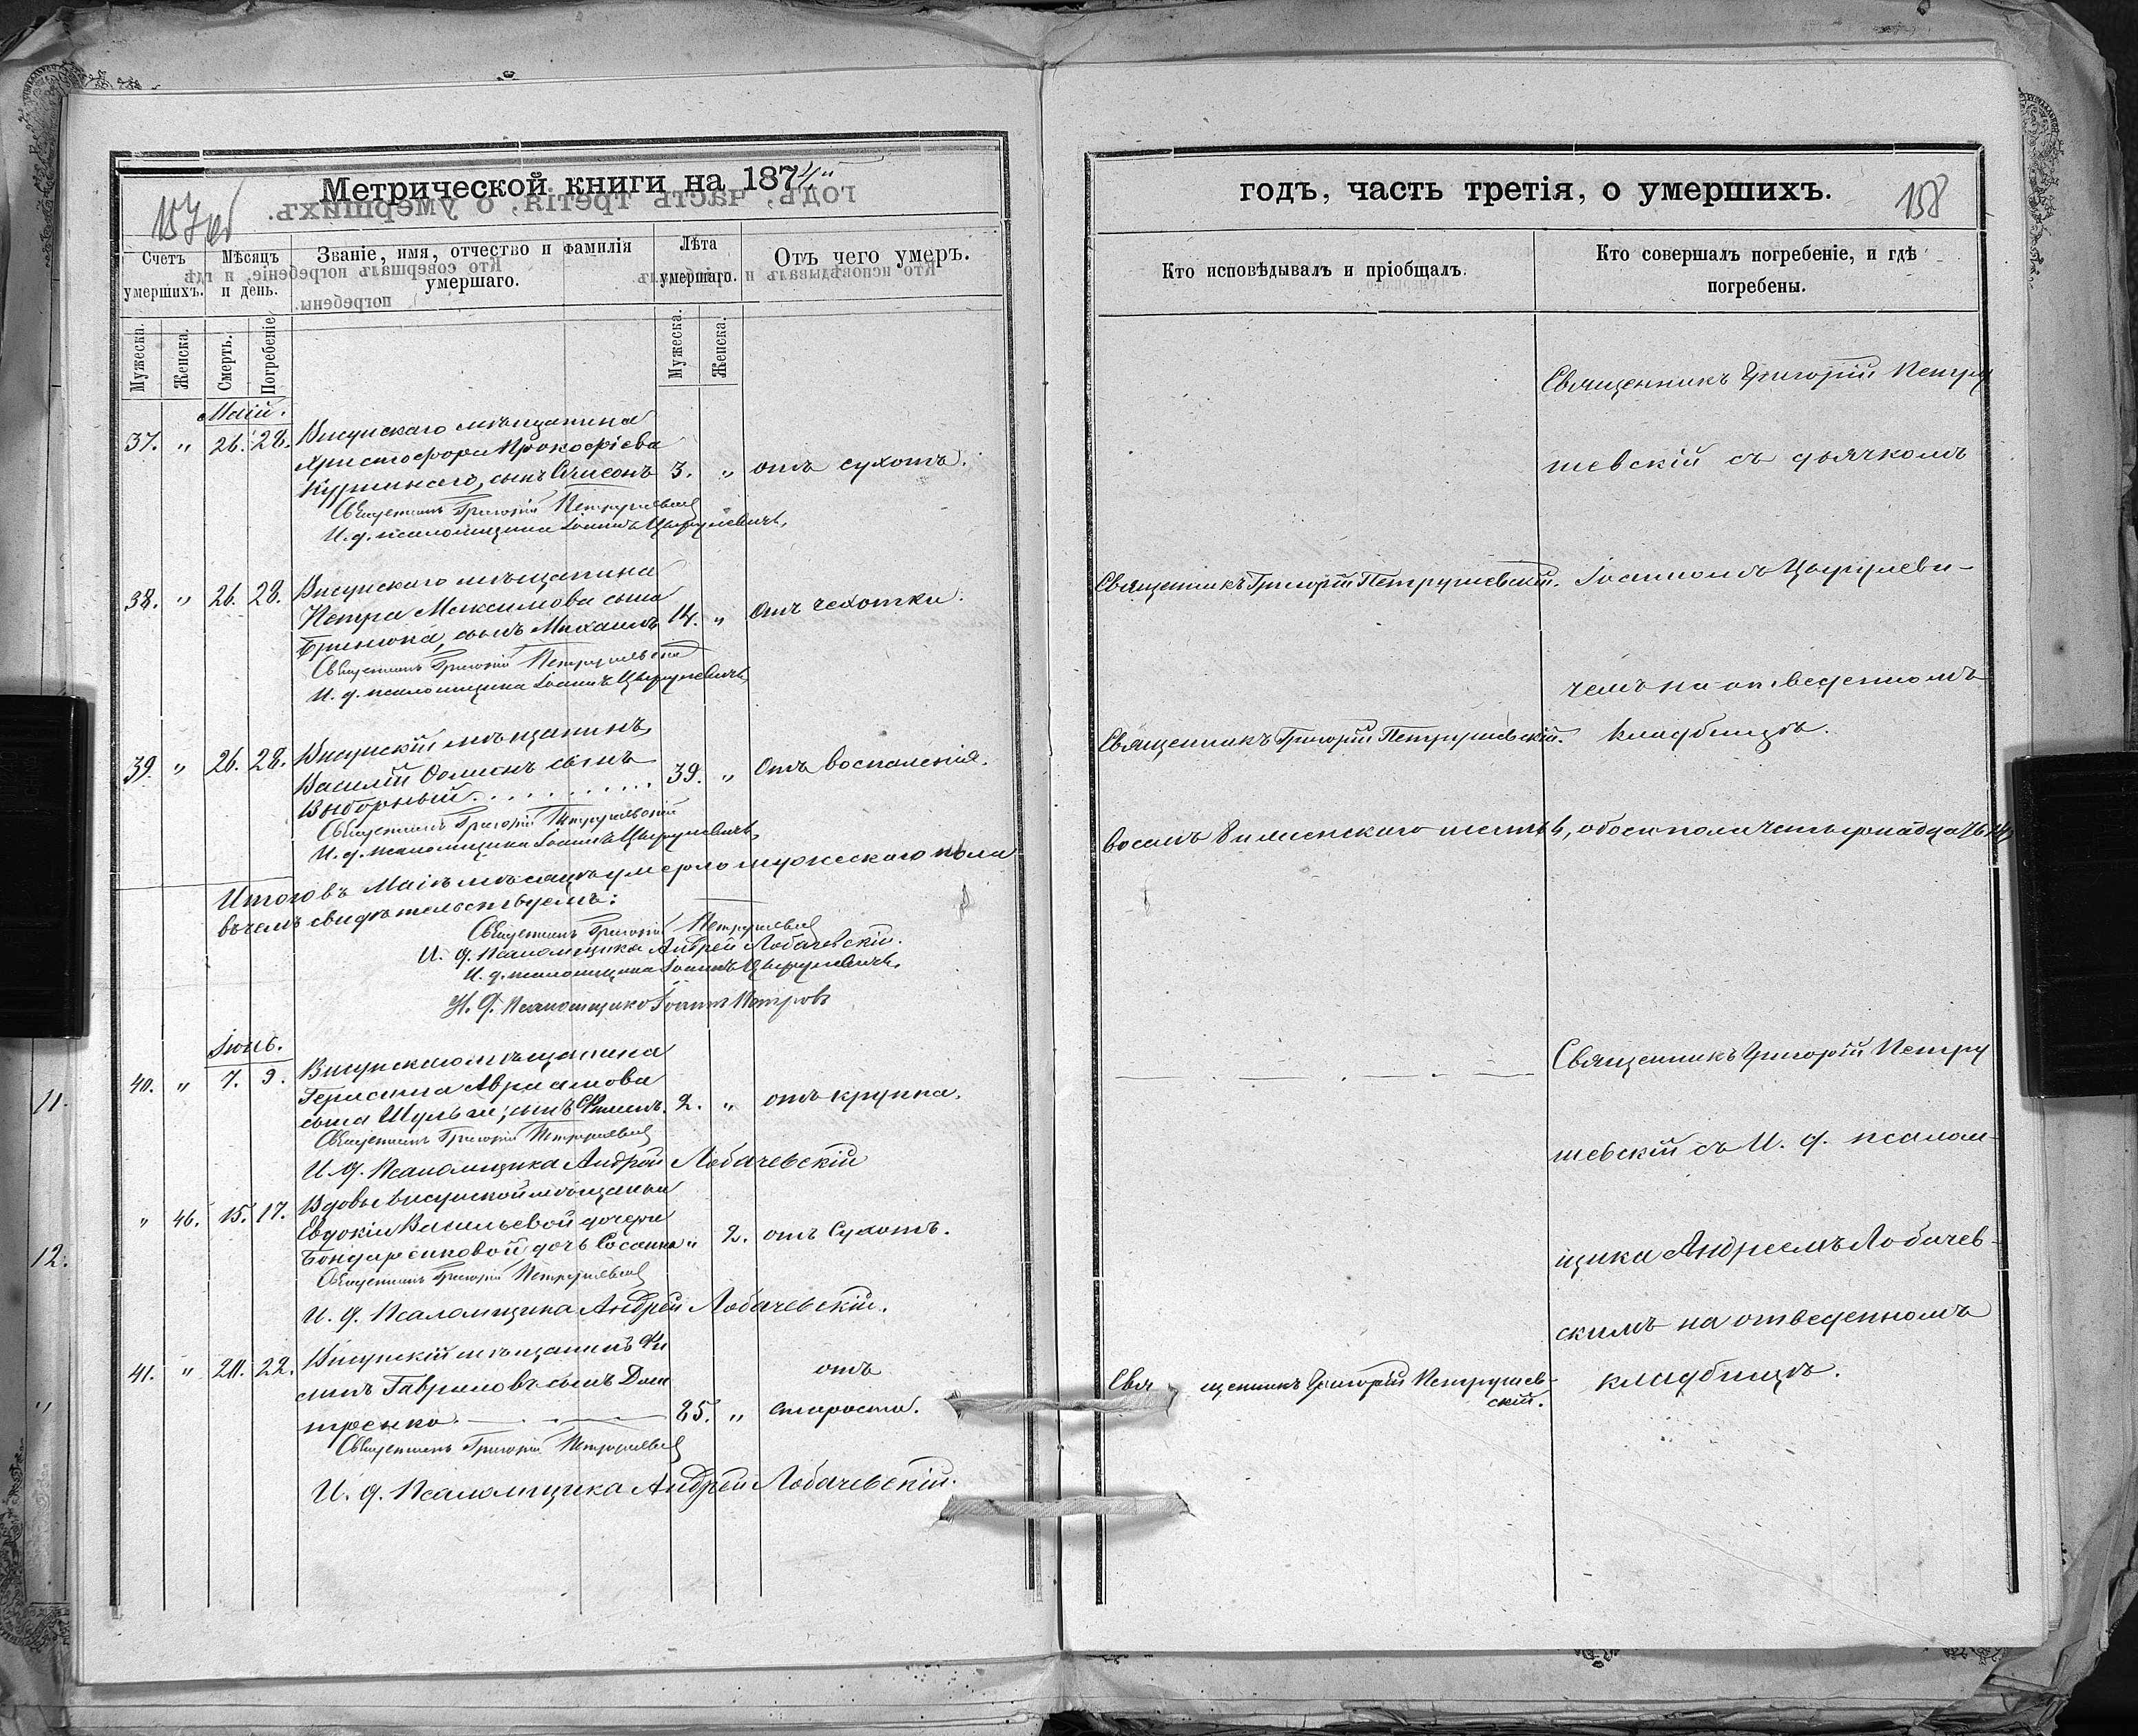 Метрической книги на 1874й
157об
Счетъ умершихъ.
Мѣсяцъ и день.
Званіе, имя, отчество и фамилія умершаго.
Лѣта умершаго.
Отъ чего умеръ.
Мужеска.
Женска.
Смерть.
Погребеніе
Мужеска.
Женска.
Маій.
37. " 26. 28. Висунскаго мѣщанина
Христофора Прокофіева
сынъ 3. " отъ сухотъ.
Священникъ Григорій Петрушевскій
И. д. псаломщика Іоаннъ Цыруневичъ,
38. " 26. 28. Висунскаго мѣщанина
Петра Максимова сына
сынъ Михаилъ 14. " Отъ чехотки.
Священникъ Григорій Петрушевскій
И. д. псаломщика Іоаннъ Цыруневичъ,
39. " 26. 28. Висунскій мѣщанинъ
Василій Фоминъ сынъ
Выборный. . . . . . . . . . 39. " Отъ воспаленія.
Священникъ Григорій Петрушевскій
И. д. псаломщика Іоаннъ Цыруневичъ,
Итого въ Маіѣ мѣсяцѣ умерло мужескаго пола
въ чемъ свидѣтельствуемъ:
Священникъ Григорій Петрушевскій
И. д. Псаломщика Андрей Лобачевскій.
И. д. псаломщика Іоаннъ Цыруневичъ,
И. д. Псаломщика Іоаннъ Петровъ
Іюнь.
40. " 7. 9. Висунскаго мѣщанина
Герасима Авраамова
сына Шульги, сынъ 2. " отъ крупа.
Священникъ Григорій Петрушевскій
И. д. Псаломщика Андрей Лобачевскій
" 46. 15. 17. Вдовы висунской мѣщанки
Евдокіи Васильевой дочери
Бондаренковой дочь " 2. отъ Сухотъ.
Священникъ Григорій Петрушевскій
И. д. Псаломщика Андрей Лобачевскій.
41. " 20. 22. Висунскій мѣщанинъ
Гавриловъ сынъ
85. " отъ
старости.
Священникъ Григорій Петрушевскій
И. д. Псаломщика Андрей Лобачевскій.
11.
12.
"
годъ, часть третія, о умершихъ.
158
Кто исповѣдывалъ и пріобщалъ.
Кто совершалъ погребеніе, и гдѣ
погребены.
Священникъ Григорій Петру
шевскій съ дьячкомъ
Священникъ Григорій Петрушевскій. Іоанномъ Цыруневи-
чемъ на отведенномъ
Священникъ Григорій Петрушевскій. кладбищѣ.
восемь 8 и женскаго шесть 6, обоего пола четырнадцать 14,
Священникъ Григорій Петру
шевскій съ И. д. псалом-
щика Андреемъ Лобачев-
скимъ на отведенномъ
Священникъ Григорій Петрушев-
скій.
кладбищѣ.